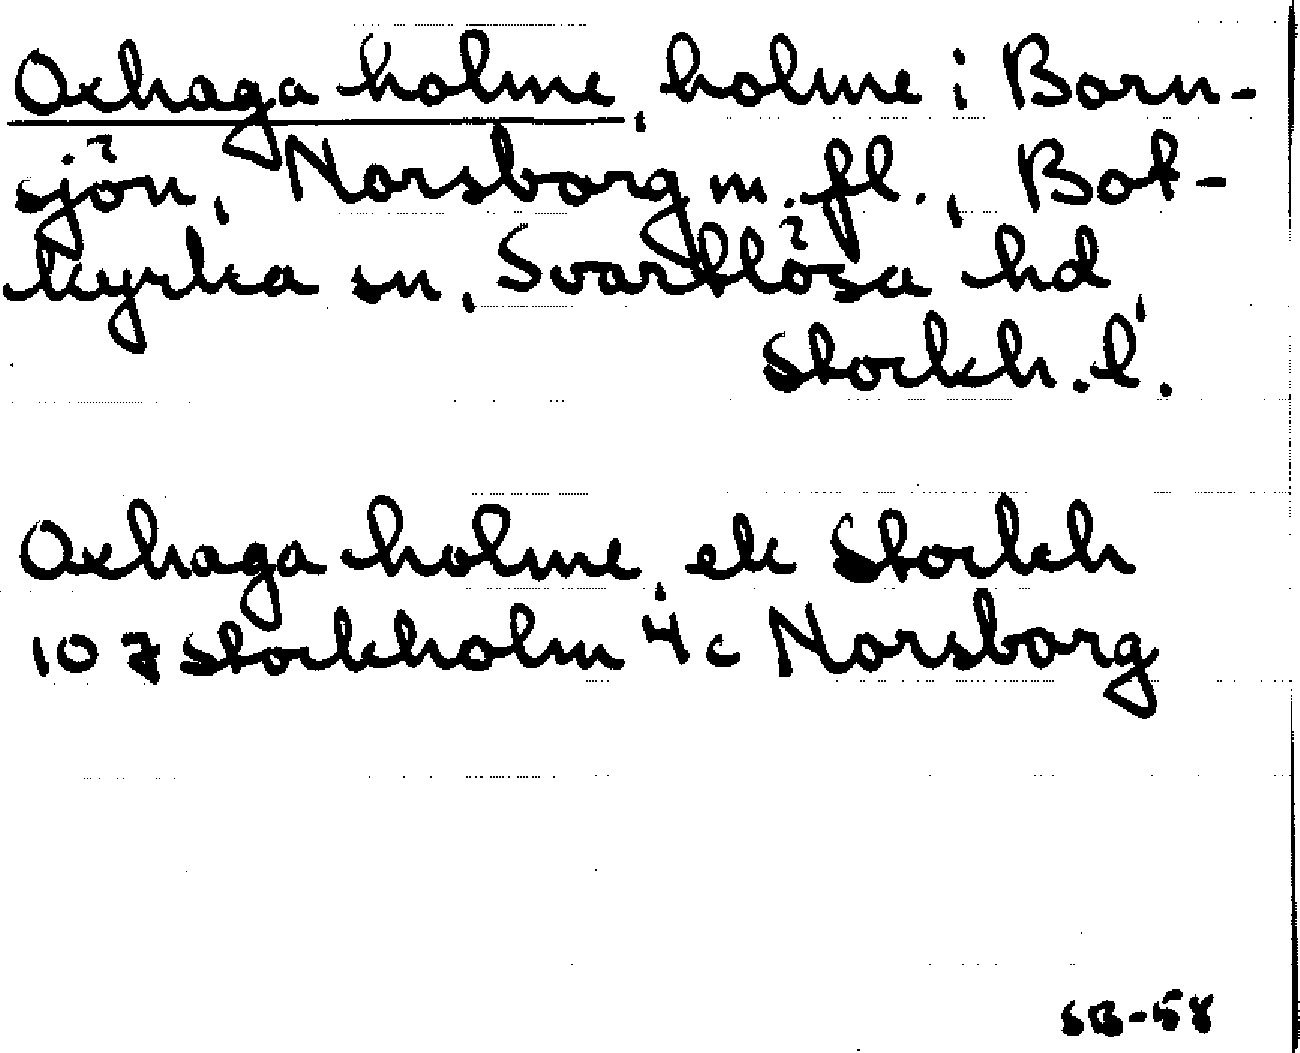 Oxhaga holme, holme i Born-
sjön, Norsborg m.fl., Bot-
kyrka sn, Svartlösa hd,
Stockh. l.
Oxhaga holme, ek Stockh
10 7 Stockholm 4c Norsborg
SB-58